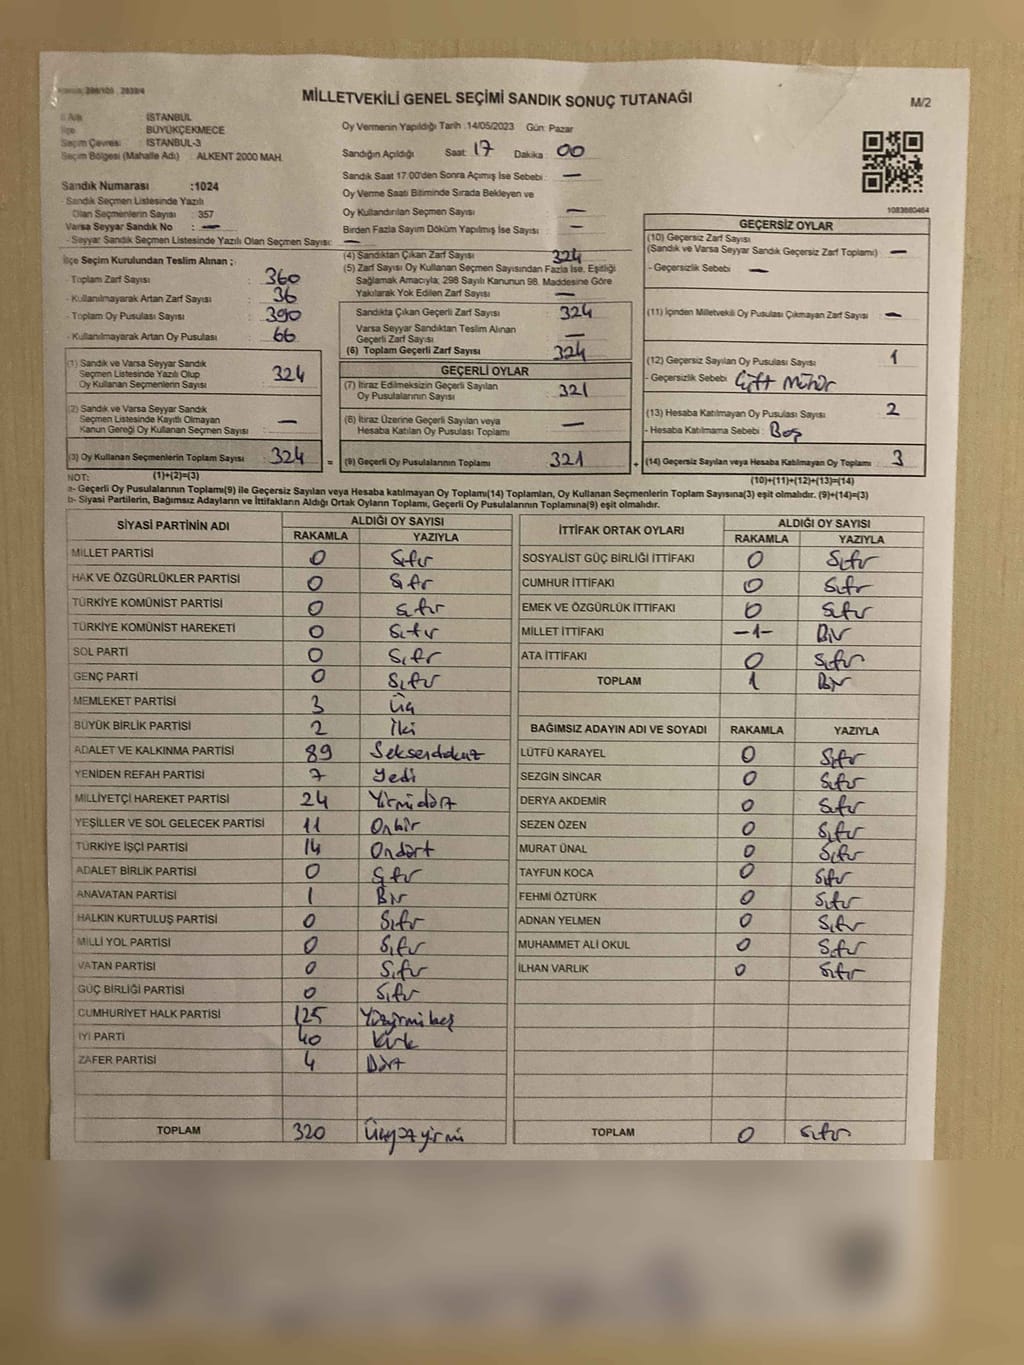 MİLLETVEKİLİ GENEL SEÇİMİ SANDIK SONUÇ TUTANAĞI
M/2
İSTANBUL
BÜYÜKÇEKMECE
Seçim Çevresi : İSTANBUL-3
Seçim Bölgesi (Mahalle Adı) : ALKENT 2000 MAH.
Sandık Numarası :1024
- Sandık Seçmen Listesinde Yazılı
Olan Seçmenlerin Sayısı : 357
Varsa Seyyar Sandık No : —
- Seyyar Sandık Seçmen Listesinde Yazılı Olan Seçmen Sayısı: —
İlçe Seçim Kurulundan Teslim Alınan ;
- Toplam Zarf Sayısı : 360
- Kullanılmayarak Artan Zarf Sayısı : 36
- Toplam Oy Pusulası Sayısı : 390
- Kullanılmayarak Artan Oy Pusulası : 66
(1) Sandık ve Varsa Seyyar Sandık
Seçmen Listesinde Yazılı Olup
Oy Kullanan Seçmenlerin Sayısı : 324
(2) Sandık ve Varsa Seyyar Sandık
Seçmen Listesinde Kayıtlı Olmayan
Kanun Gereği Oy Kullanan Seçmen Sayısı : —
(3) Oy Kullanan Seçmenlerin Toplam Sayısı : 324
Oy Vermenin Yapıldığı Tarih :14/05/2023 Gün: Pazar
Sandığın Açıldığı Saat: 17 Dakika : 00
Sandık Saat 17:00'den Sonra Açımış İse Sebebi : —
Oy Verme Saati Bitiminde Sırada Bekleyen ve
Oy Kullandırılan Seçmen Sayısı : —
Birden Fazla Sayım Döküm Yapılmış İse Sayısı : —
(4) Sandıktan Çıkan Zarf Sayısı : 324
(5) Zarf Sayısı Oy Kullanan Seçmen Sayısından Fazla İse, Eşitliği
Sağlamak Amacıyla; 298 Sayılı Kanunun 98. Maddesine Göre
Yakılarak Yok Edilen Zarf Sayısı : —
Sandıkta Çıkan Geçerli Zarf Sayısı : 324
Varsa Seyyar Sandıktan Teslim Alınan
Geçerli Zarf Sayısı : —
(6) Toplam Geçerli Zarf Sayısı : 324
GEÇERLİ OYLAR
(7) İtiraz Edilmeksizin Geçerli Sayılan
Oy Pusulalarının Sayısı : 321
(8) İtiraz Üzerine Geçerli Sayılan veya
Hesaba Katılan Oy Pusulası Toplamı : —
= (9) Geçerli Oy Pusulalarının Toplamı : 321 +
1083680464
GEÇERSİZ OYLAR
(10) Geçersiz Zarf Sayısı
(Sandık ve Varsa Seyyar Sandık Geçersiz Zarf Toplamı) : —
- Geçersizlik Sebebi : —
(11) İçinden Milletvekili Oy Pusulası Çıkmayan Zarf Sayısı : —
(12) Geçersiz Sayılan Oy Pusulası Sayısı : 1
- Geçersizlik Sebebi : Çift Mühür
(13) Hesaba Katılmayan Oy Pusulası Sayısı : 2
- Hesaba Katılmama Sebebi : Boş
(14) Geçersiz Sayılan veya Hesaba Katılmayan Oy Toplamı : 3
NOT: (1)+(2)=(3) (10)+(11)+(12)+(13)=(14)
a- Geçerli Oy Pusulalarının Toplamı(9) ile Geçersiz Sayılan veya Hesaba katılmayan Oy Toplamı(14) Toplamları, Oy Kullanan Seçmenlerin Toplam Sayısına(3) eşit olmalıdır. (9)+(14)=(3)
b- Siyasi Partilerin, Bağımsız Adayların ve İttifakların Aldığı Ortak Oyların Toplamı, Geçerli Oy Pusulalarının Toplamına(9) eşit olmalıdır.
SİYASİ PARTİNİN ADI ALDIĞI OY SAYISI
RAKAMLA YAZIYLA
MİLLET PARTİSİ 0 Sıfır
HAK VE ÖZGÜRLÜKLER PARTİSİ 0 Sıfır
TÜRKİYE KOMÜNİST PARTİSİ 0 Sıfır
TÜRKİYE KOMÜNİST HAREKETİ 0 Sıfır
SOL PARTİ 0 Sıfır
GENÇ PARTİ 0 Sıfır
MEMLEKET PARTİSİ 3 Üç
BÜYÜK BİRLİK PARTİSİ 2 İki
ADALET VE KALKINMA PARTİSİ 89 Seksendokuz
YENİDEN REFAH PARTİSİ 7 Yedi
MİLLİYETÇİ HAREKET PARTİSİ 24 Yirmidört
YEŞİLLER VE SOL GELECEK PARTİSİ 11 Onbir
TÜRKİYE İŞÇİ PARTİSİ 14 Ondört
ADALET BİRLİK PARTİSİ 0 Sıfır
ANAVATAN PARTİSİ 1 Bir
HALKIN KURTULUŞ PARTİSİ 0 Sıfır
MİLLİ YOL PARTİSİ 0 Sıfır
VATAN PARTİSİ 0 Sıfır
GÜÇ BİRLİĞİ PARTİSİ 0 Sıfır
CUMHURİYET HALK PARTİSİ 125 Yüzyirmibeş
İYİ PARTİ 40 Kırk
ZAFER PARTİSİ 4 Dört
TOPLAM 320 Üçyüzyirmi
İTTİFAK ORTAK OYLARI ALDIĞI OY SAYISI
RAKAMLA YAZIYLA
SOSYALİST GÜÇ BİRLİĞİ İTTİFAKI 0 Sıfır
CUMHUR İTTİFAKI 0 Sıfır
EMEK VE ÖZGÜRLÜK İTTİFAKI 0 Sıfır
MİLLET İTTİFAKI -1- Bir
ATA İTTİFAKI 0 Sıfır
TOPLAM 1 Bir
BAĞIMSIZ ADAYIN ADI VE SOYADI RAKAMLA YAZIYLA
LÜTFÜ KARAYEL 0 Sıfır
SEZGİN SİNCAR 0 Sıfır
DERYA AKDEMİR 0 Sıfır
SEZEN ÖZEN 0 Sıfır
MURAT ÜNAL 0 Sıfır
TAYFUN KOCA 0 Sıfır
FEHMİ ÖZTÜRK 0 Sıfır
ADNAN YELMEN 0 Sıfır
MUHAMMET ALİ OKUL 0 Sıfır
İLHAN VARLIK 0 Sıfır
TOPLAM 0 Sıfır